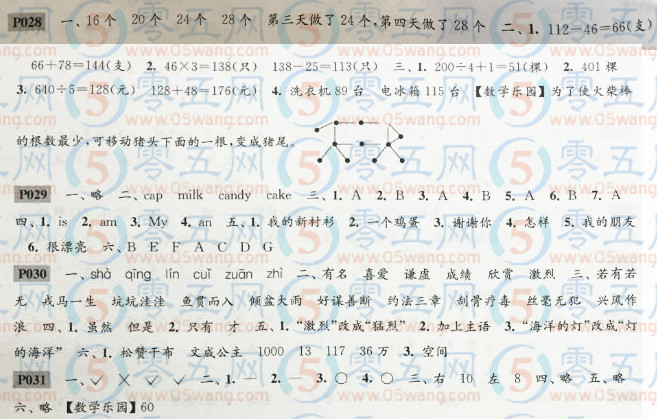 P028 一、16个 20个 24个 28个 第三天做了24个,第四天做了28个 二、1. 112-46=66(支)
66+78=144(支) 2. 46×3=138(只) 138-25=113(只) 三、1. 200÷4+1=51(棵) 2. 401棵
3. 640÷5=128(元) 128+48=176(元) 4. 洗衣机89台 电冰箱115台 【数学乐园】为了使火柴棒
的根数最少,可移动猪头下面的一根,变成猪尾。
P029 一、略 二、cap milk candy cake 三、1. A 2. B 3. A 4. B 5. A 6. B 7. A
四、1. is 2. am 3. My 4. an 五、1. 我的新衬衫 2. 一个鸡蛋 3. 谢谢你 4. 怎样 5. 我的朋友
6. 很漂亮 六、B E F A C D G
P030 一、shà qīng lín cuī zuān zhì 二、有名 喜爱 谦虚 成绩 欣赏 激烈 三、若有若
无 戎马一生 坑坑洼洼 鱼贯而入 倾盆大雨 好谋善断 约法三章 刮骨疗毒 丝毫无犯 兴风作
浪 四、1. 虽然 但是 2. 只有 才 五、1. “激烈”改成“猛烈” 2. 加上主语 3. “海洋的灯”改成“灯
的海洋” 六、1. 松赞干布 文成公主 1000 13 117 36万 3. 空间
P031 一、✓ × ✓ ✓ 二、1. — 2. — 3. ○ 4. ○ 三、右 10 左 8 四、略 五、略
六、略 【数学乐园】60